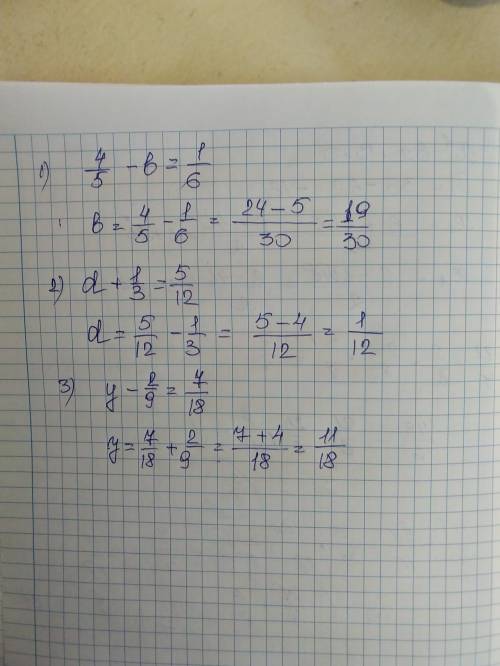 1) 4/5 - b = 1/6
b = 4/5 - 1/6 = (24 - 5)/30 = 19/30
2) d + 1/3 = 5/12
d = 5/12 - 1/3 = (5 - 4)/12 = 1/12
3) y - 2/9 = 7/18
y = 7/18 + 2/9 = (7 + 4)/18 = 11/18